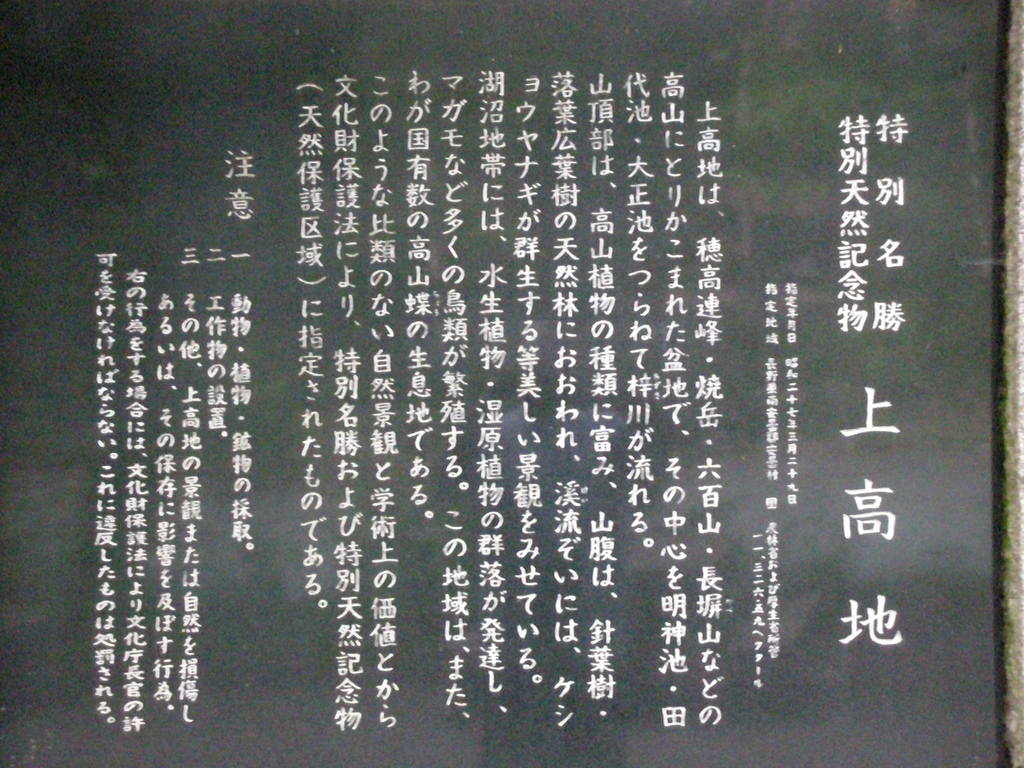 特別名勝
特別天然記念物
上高地
指定年月日 昭和二十七年三月二十九日
指定地域 長野県南安曇郡安曇村 国 農林省および厚生省所管
一一、三二六・五九ヘクタール
上高地は、穂高連峰・焼岳・六百山・長塀山などの
高山にとりかこまれた盆地で、その中心を明神池・田
代池・大正池をつらねて梓川が流れる。
山頂部は、高山植物の種類に富み、山腹は、針葉樹・
落葉広葉樹の天然林におおわれ、渓流ぞいには、ケシ
ョウヤナギが群生する等美しい景観をみせている。
湖沼地帯には、水生植物・湿原植物の群落が発達し、
マガモなど多くの鳥類が繁殖する。この地域は、また、
わが国有数の高山蝶の生息地である。
このような比類のない自然景観と学術上の価値とから
文化財保護法により、特別名勝および特別天然記念物
(天然保護区域)に指定されたものである。
注意
一 動物・植物・鉱物の採取。
二 工作物の設置。
三 その他、上高地の景観または自然を損傷し
あるいは、その保存に影響を及ぼす行為。
右の行為をする場合には、文化財保護法により文化庁長官の許
可を受けなければならない。これに違反したものは処罰される。